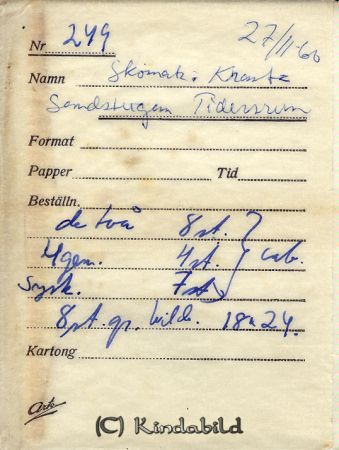 27/11-66
Nr 249
Namn Skomak. Krantz
Sandstugan Tidersrum
Format
Papper Tid
Beställn.
de två 8 st.
4 gen. 4 st. cab.
Sysk. 7 st
8 st. gr. bild. 18 x 24.
Kartong
Arte
(C) Kindabild